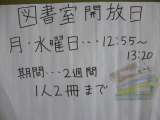 図書室開放日
月・水曜日・・・12:55〜
13:20
期間・・・2週間
1人2冊まで